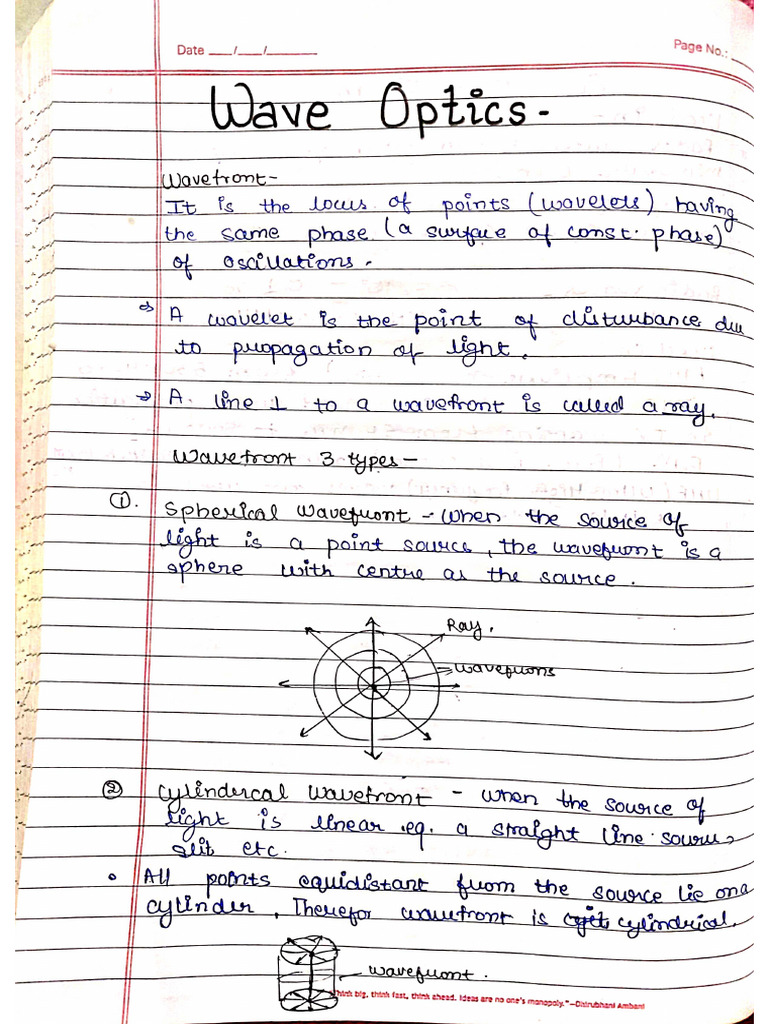 Date ___/___/______
Page No.:
Wave Optics -
Wavefront-
It is the locus of points (wavelets) having
the same phase (a surface of const. phase)
of oscillations.
⇒ A wavelet is the point of disturbance due
to propagation of light.
⇒ A line ⊥ to a wavefront is called a ray.
Wavefront 3 types-
①. Spherical wavefront - when the source of
light is a point source, the wavefront is a
sphere with centre as the source.
Ray.
wavefrons
② Cylindercal wavefront - when the source of
light is linear eg. a straight line source,
slit etc.
• All points equidistant from the source lie on a
cylinder, Therefor wavefront is cylindrical.
wavefront.
"Think big, think fast, think ahead. Ideas are no one's monopoly."–Dhirubhani Ambani